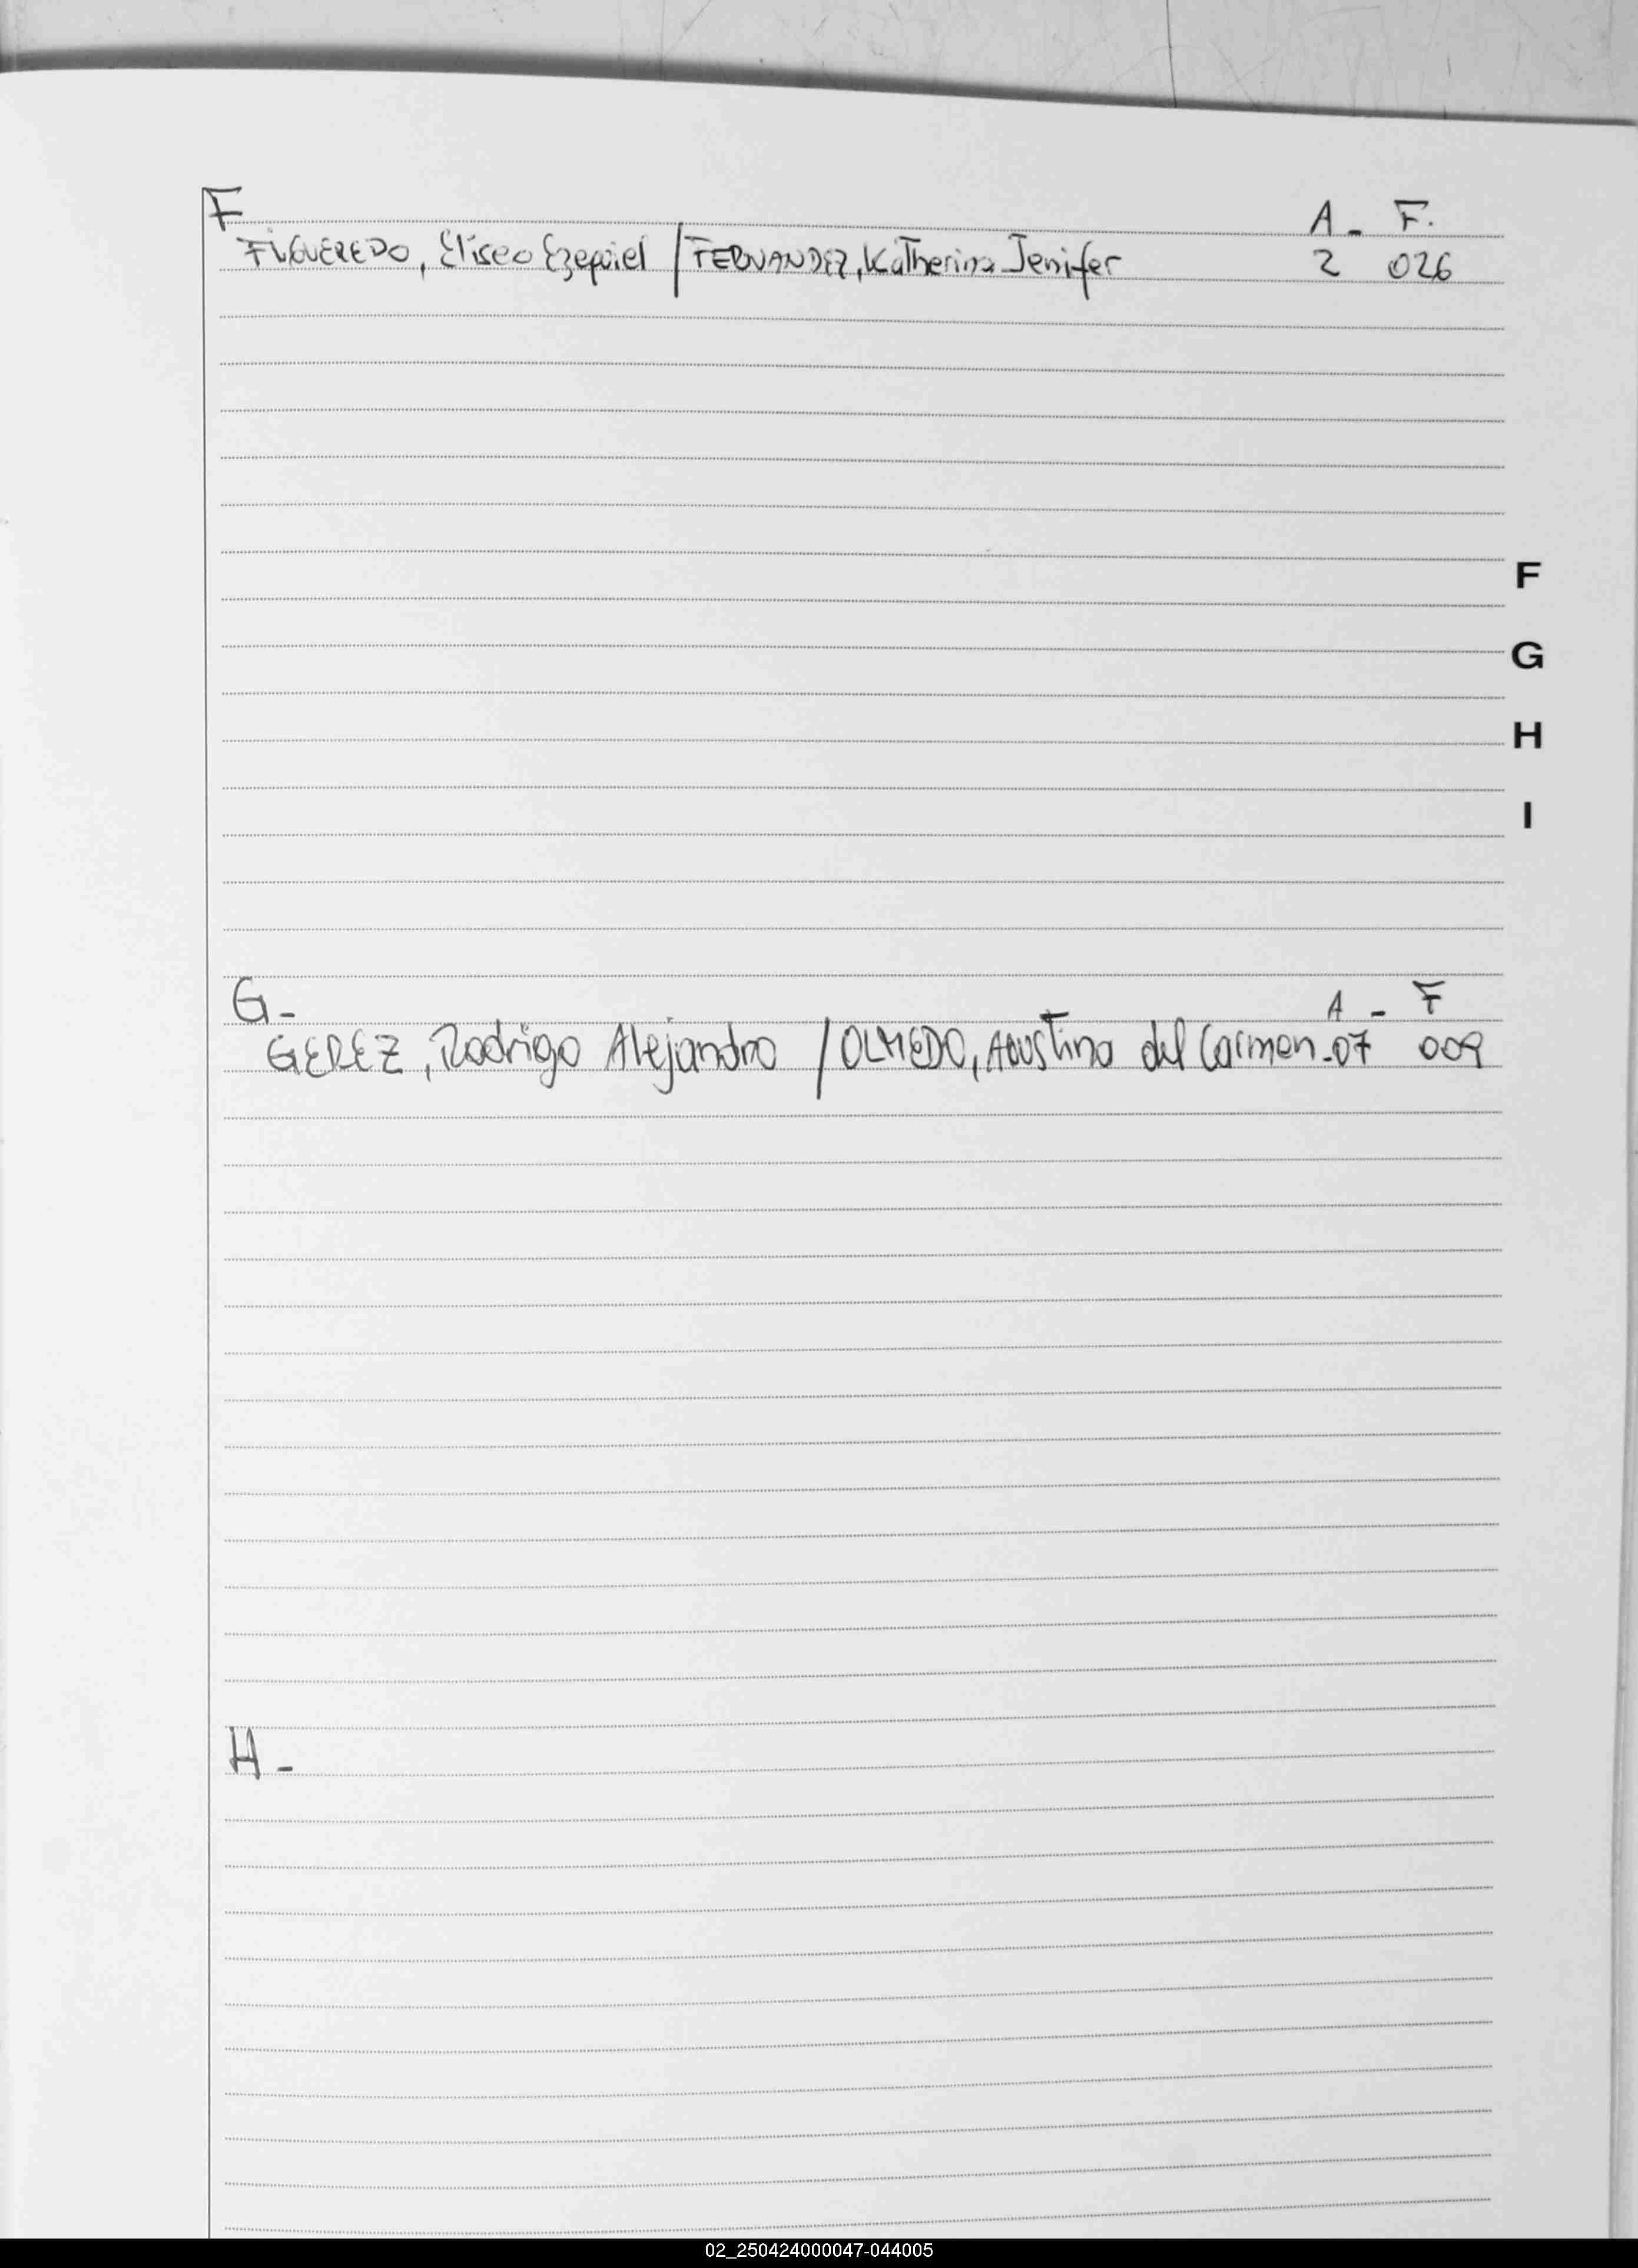 F
A - F.
FIGUEREDO, Eliseo Ezequiel / FERNANDEZ, Katherina Jenifer 2 026
F
G
H
I
G-
A - F
GEREZ, Rodrigo Alejandro / OLMEDO, Agustina del Carmen - 07 009
H -
02_250424000047-044005